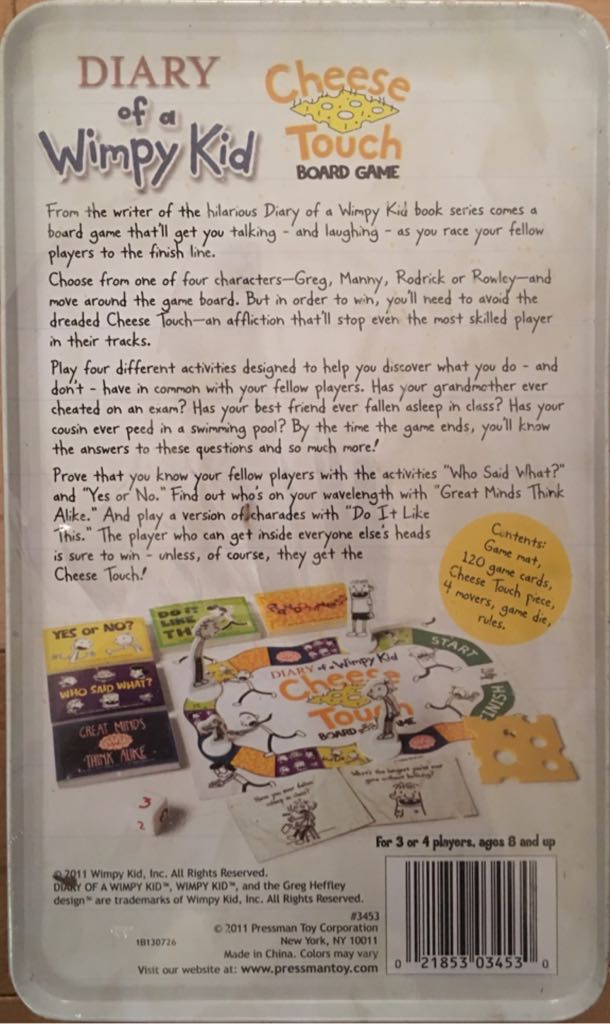 DIARY
of a
Wimpy Kid
Cheese
Touch
BOARD GAME
From the writer of the hilarious Diary of a Wimpy Kid book series comes a
board game that'll get you talking - and laughing - as you race your fellow
players to the finish line.
Choose from one of four characters—Greg, Manny, Rodrick or Rowley—and
move around the game board. But in order to win, you'll need to avoid the
dreaded Cheese Touch—an affliction that'll stop even the most skilled player
in their tracks.
Play four different activities designed to help you discover what you do - and
don't - have in common with your fellow players. Has your grandmother ever
cheated on an exam? Has your best friend ever fallen asleep in class? Has your
cousin ever peed in a swimming pool? By the time the game ends, you'll know
the answers to these questions and so much more!
Prove that you know your fellow players with the activities "Who Said What?"
and "Yes or No." Find out who's on your wavelength with "Great Minds Think
Alike." And play a version of charades with "Do It Like
This." The player who can get inside everyone else's heads
is sure to win - unless, of course, they get the
Cheese Touch!
Contents:
Game mat,
120 game cards,
Cheese Touch piece,
4 movers, game die,
rules.
YES or NO?
DO IT
LIKE
TH
WHO SAID WHAT?
GREAT MINDS
THINK ALIKE
DIARY of a Wimpy Kid
Cheese
Touch
BOARD
START
FINISH
3
2
For 3 or 4 players, ages 8 and up
© 2011 Wimpy Kid, Inc. All Rights Reserved.
DIARY OF A WIMPY KID™, WIMPY KID™, and the Greg Heffley
design™ are trademarks of Wimpy Kid, Inc. All Rights Reserved.
#3453
© 2011 Pressman Toy Corporation
1B130726
New York, NY 10011
Made in China. Colors may vary
Visit our website at: www.pressmantoy.com
0 21853 03453 0